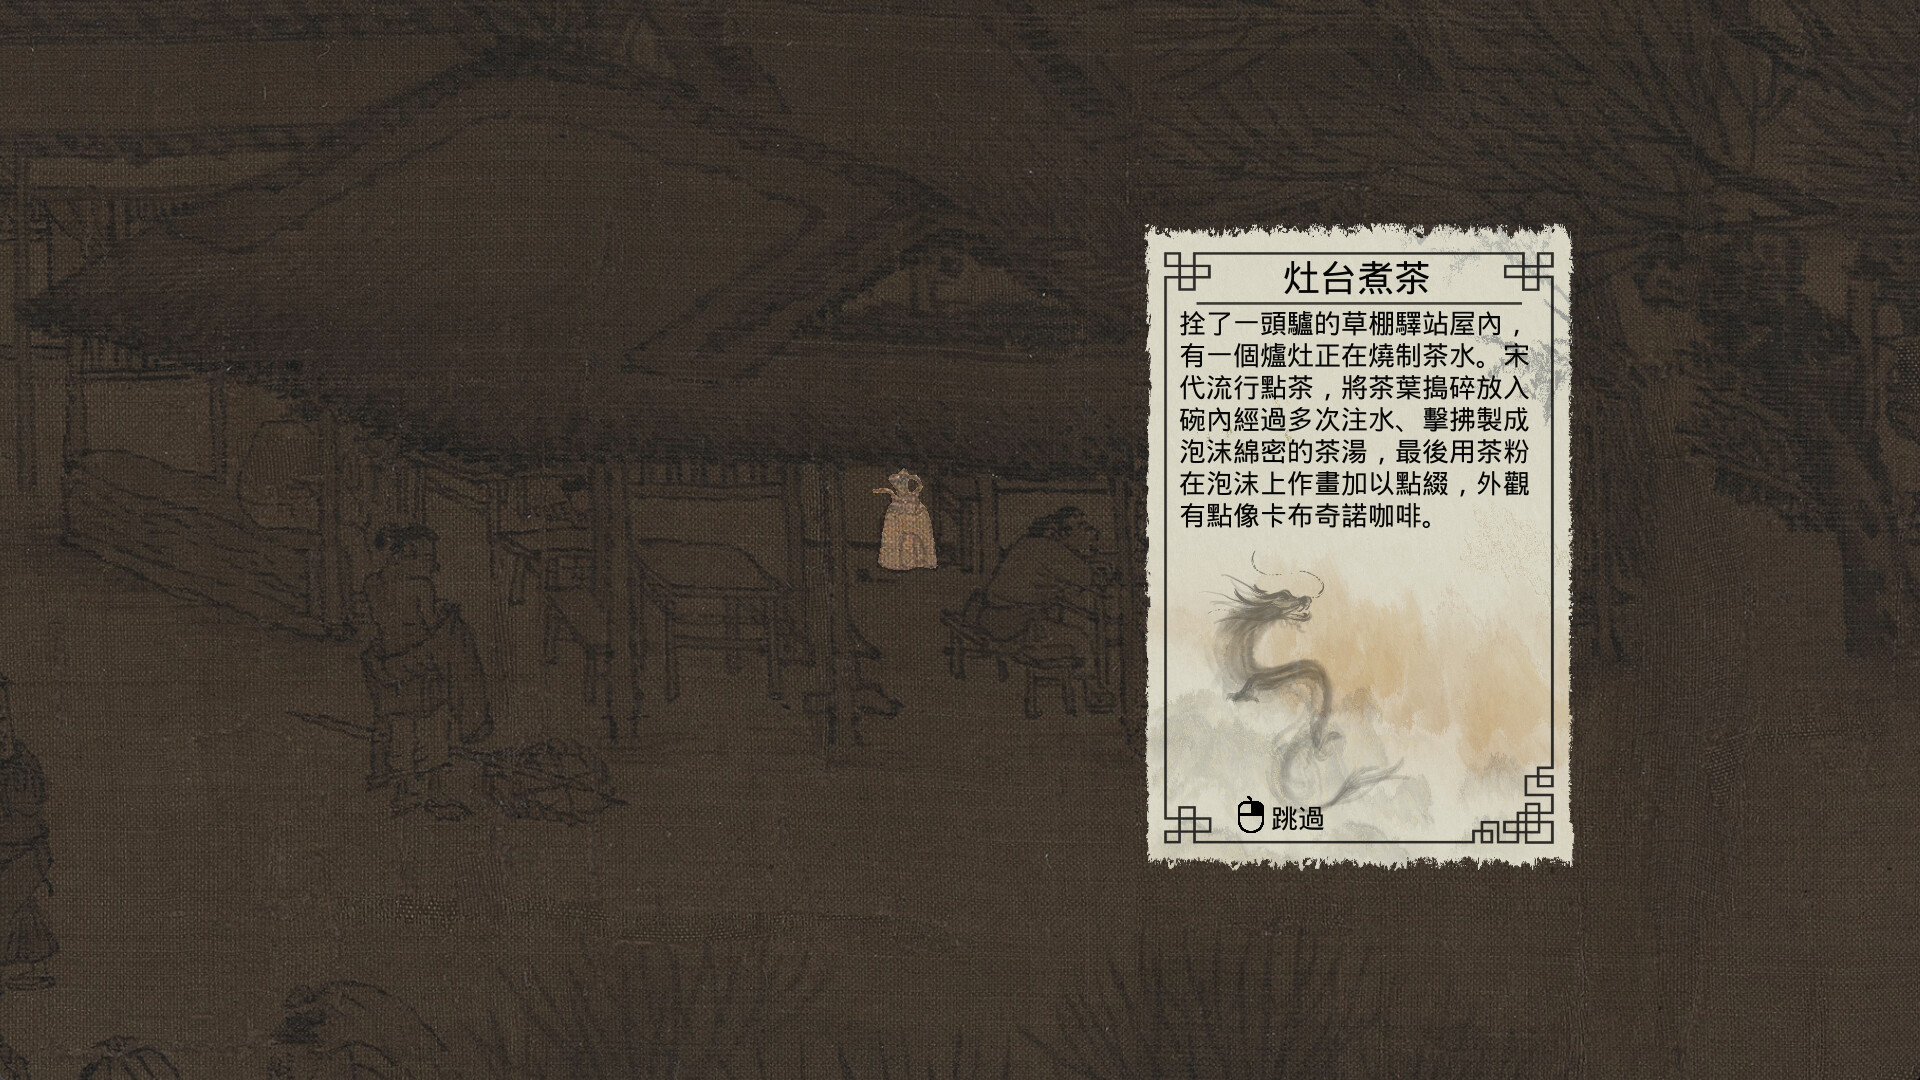 灶台煮茶
拴了一頭驢的草棚驛站屋內，
有一個爐灶正在燒制茶水。宋
代流行點茶，將茶葉搗碎放入
碗內經過多次注水、擊拂製成
泡沫綿密的茶湯，最後用茶粉
在泡沫上作畫加以點綴，外觀
有點像卡布奇諾咖啡。
跳過